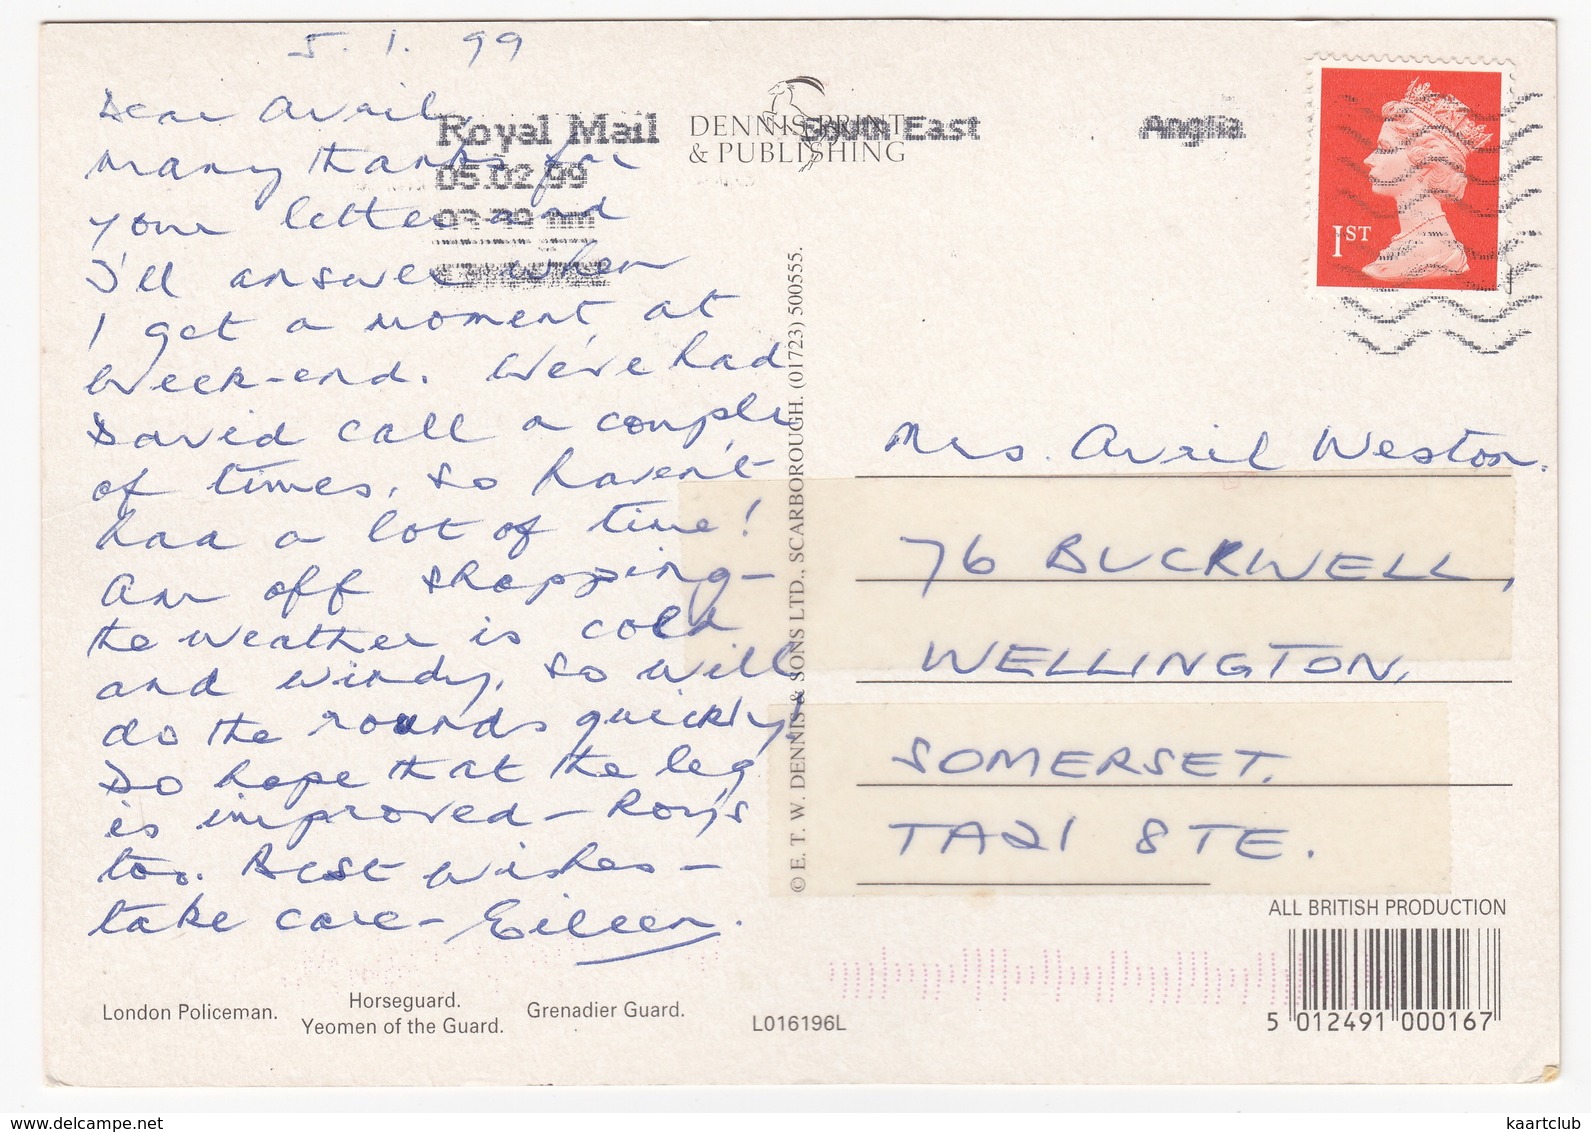 5. 1. 99
Dear Avril,
Many thanks for
your letter and
I'll answer when
I get a moment, at
week-end. We've had
David call a couple
of times, so haven't
had a lot of time!
Am off shopping -
the weather is cold
and windy, so will
do the rounds quickly!
Do hope that the leg
is improved - Roy's
too. Best wishes -
take care - Eileen.
Royal Mail
05.02.99
South East
Anglia
DENNIS PRINT
& PUBLISHING
1ST
© E. T. W. DENNIS & SONS LTD., SCARBOROUGH. (01723) 500555.
Mrs. Avril Weston.
76 BUCKWELL,
WELLINGTON,
SOMERSET.
TA21 8TE.
ALL BRITISH PRODUCTION
5 012491 000167
London Policeman.
Horseguard.
Yeomen of the Guard.
Grenadier Guard.
L016196L
www.delcampe.net
kaartclub